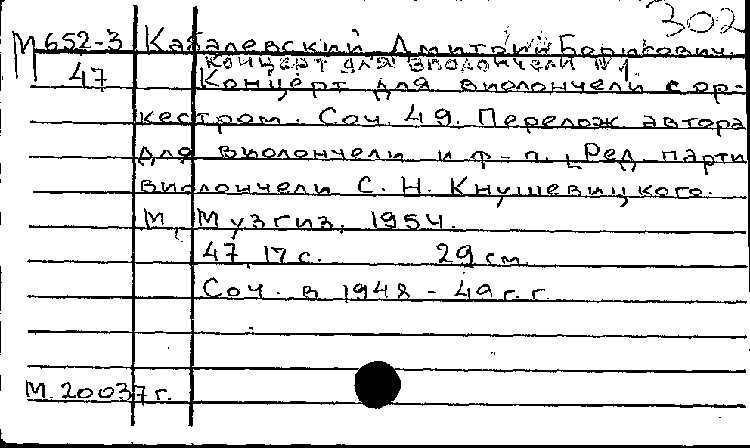 302
М 652-3 Кабалевский Дмитрий Борисович.
Концерт для виолончели №1
47 Концерт для виолончели с ор-
кестром. Соч. 49. Перелож. автора
для виолончели и ф-п. [Ред. парти
виолончели С. Н. Кнушевицкого.
М., Музгиз, 1954.
47, 17 с. 29 см.
Соч. в 1948 - 49 г.г.
М. 20037 г.